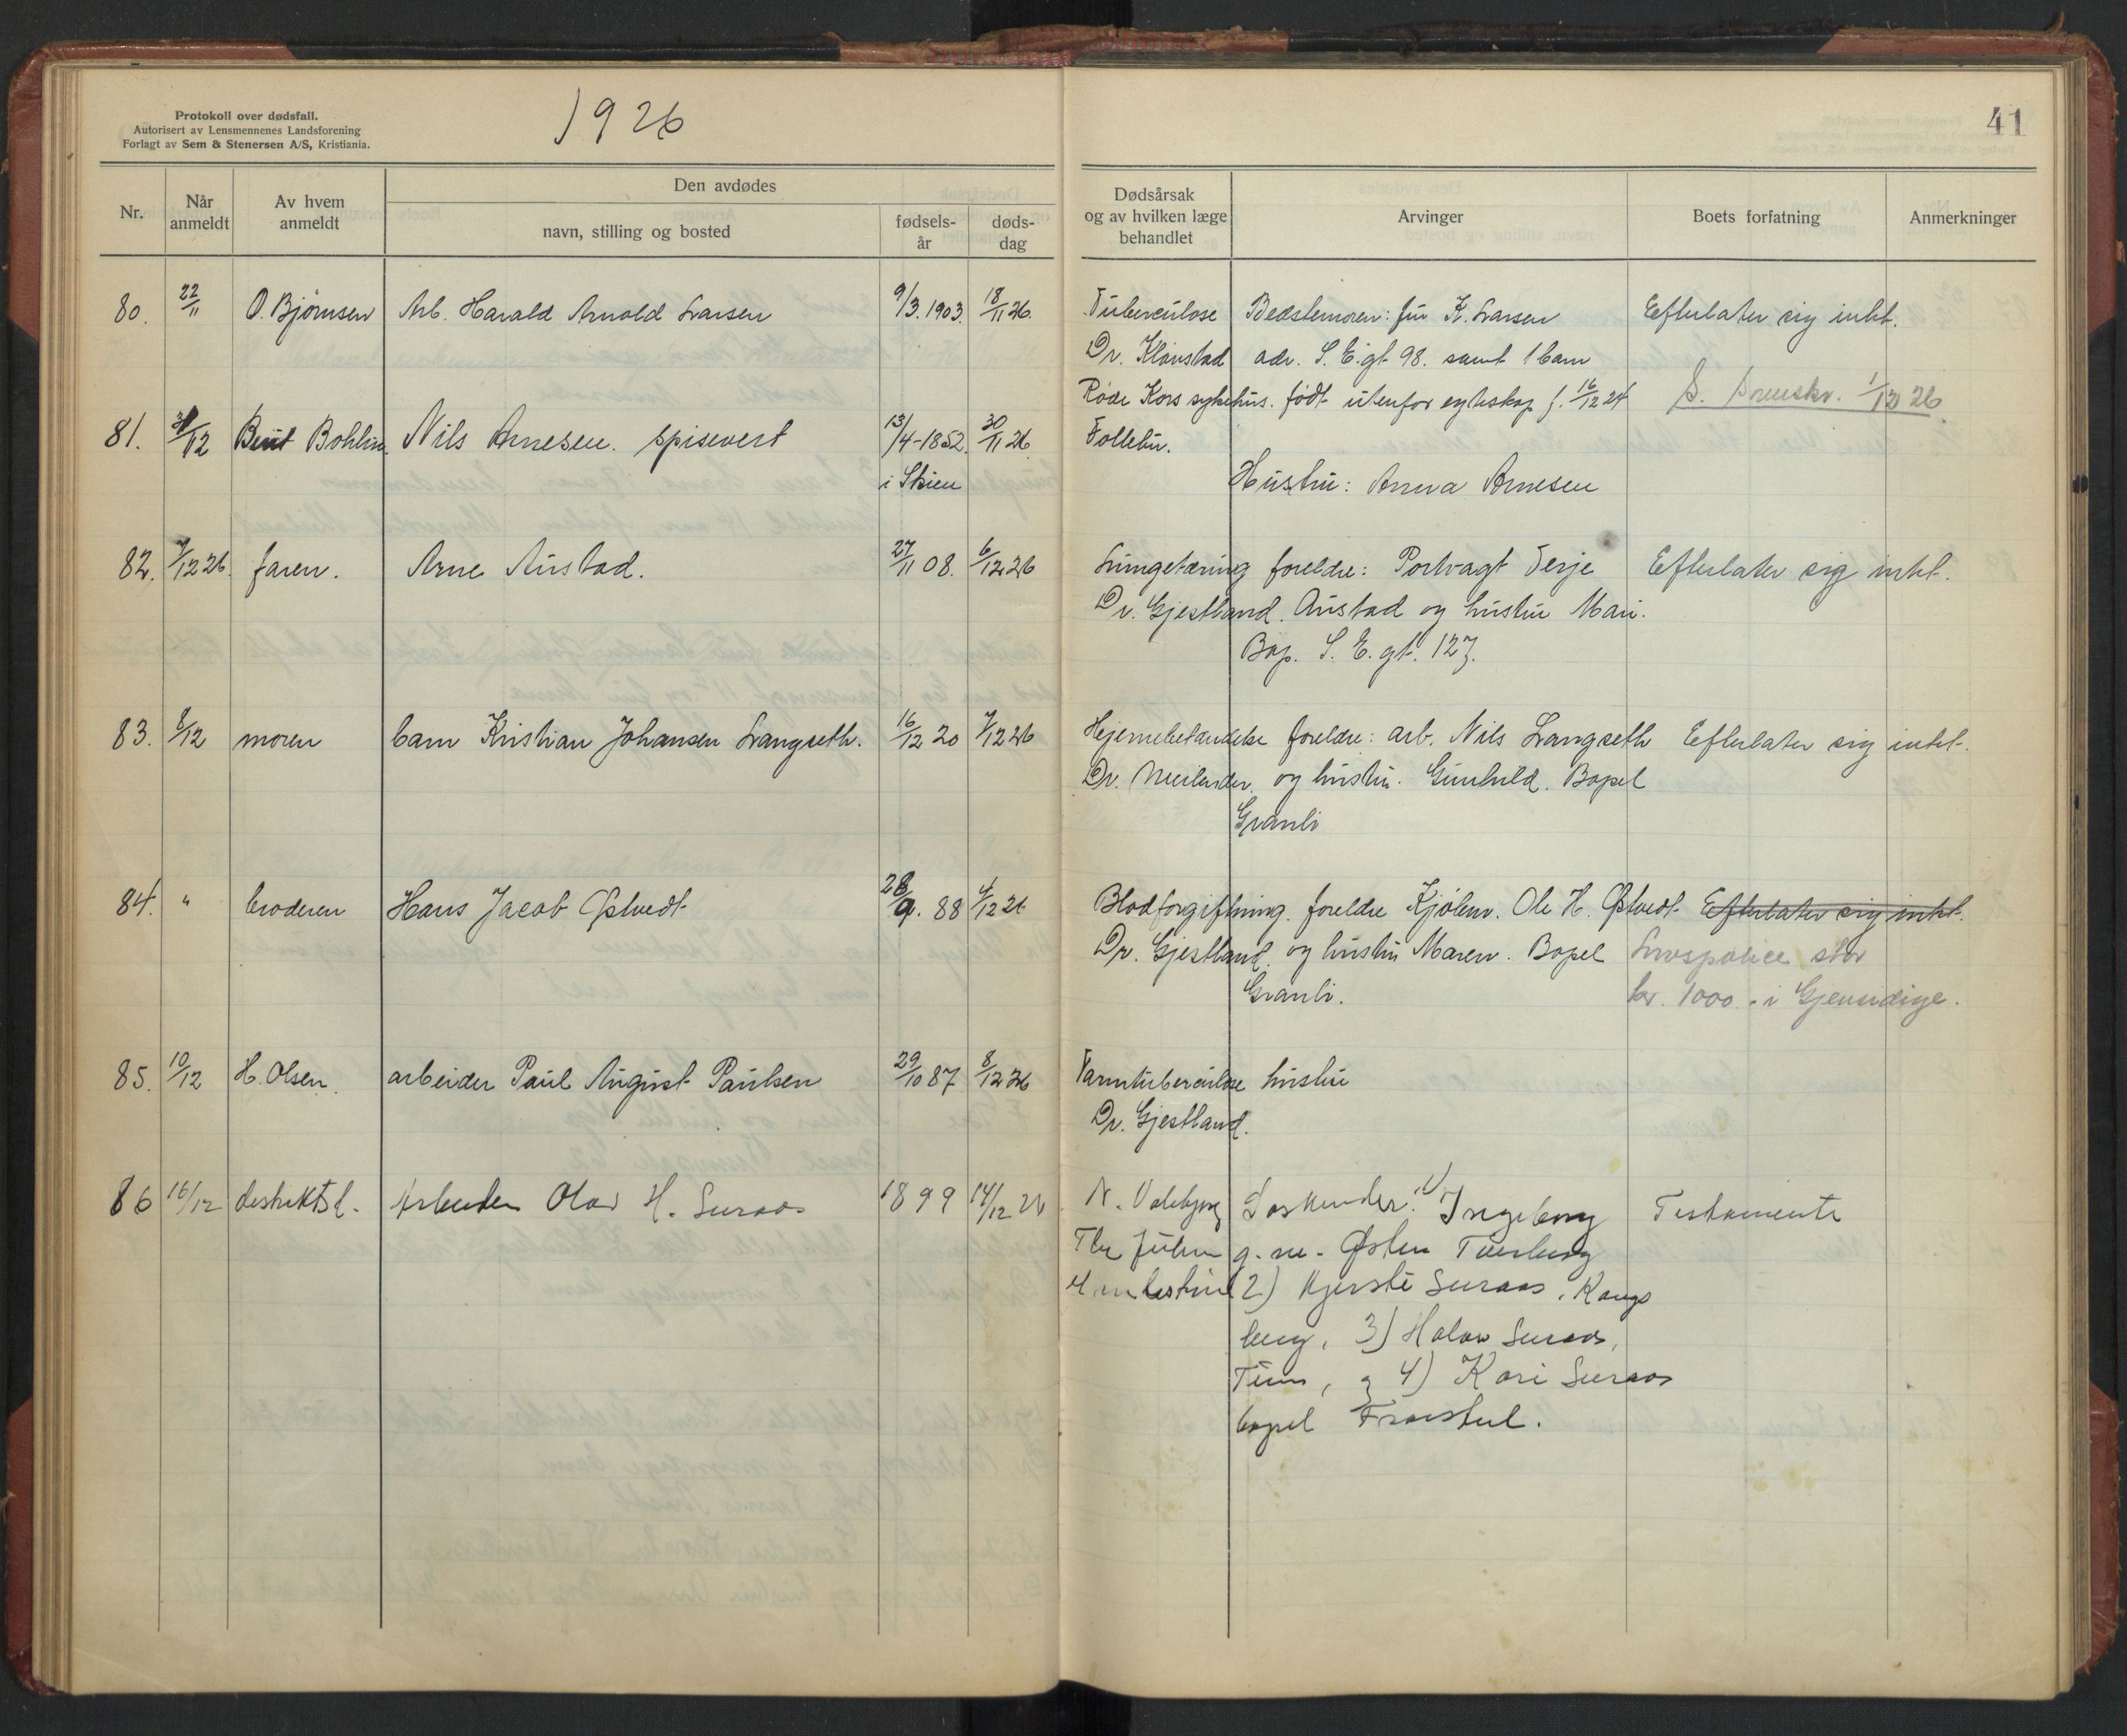 Protokoll over dødsfall.
Autorisert av Lensmennenes Landsforening
Forlagt av Sem & Stenersen A/S, Kristiania.
1926
Nr.
Når anmeldt
Av hvem anmeldt
Den avdødes
navn, stilling og bosted
fødsels-år
døds-dag
80. 22/11 O. Bjørnsen Arb. Harald Arnold Larsen 9/3. 1903. 18/11 26.
81. 12 Bohlin Nils Arnesen. spisevert 13/4-1852. 30/11 26.
i Skien
82. 7/12 26. faren. Arne Austad. 27/11 08. 6/12 26
83. 8/12 moren barn Kristian Johansen Langseth. 16/12 20 7/12 26
84. " broderen Hans Jacob Østvedt 28/9. 88 4/12 26
85. 10/12 H. Olsen. arbeider Paul August Paulsen 29/10 87 8/12 26
86 16/12 distriktsl. Arbeider Olav H. Suraas 1899 14/12 26
41
Dødsårsak
og av hvilken læge
behandlet
Arvinger
Boets forfatning
Anmerkninger
Tuberculose Bedstemoren: fru K. Larsen Efterlater sig intet.
Dr. Klovstad adr. S. E. gt 98. samt 1 barn
Røde Kors sykehus. født utenfor egteskap f. 16/12 24 1/12 26
Hustru: Anna Arnesen
Lungetæring foreldre: Portvagt Terje Efterlater sig intet.
Dr. Gjestland. Austad og hustru Mari.
Bop. S. E. gt. 127.
Hjernebetændelse foreldre: arb. Nils Langseth Efterlater sig intet.
Dr. og hustru. Gunhild. Bopel
Granli
Blodforgiftning. foreldre Kjølem. Ole H. Østvedt Efterlater sig intet.
Dr. Gjestland. og hustru Maren. Bopel Livspolice stor
Granli. kr. 1000.- i Gjensidige.
Tarmtuberculose hustru
Dr. Gjestland.
N. Valebjørg Søskender: 1) Ingeborg Testamente
g. m. Østen
2) Kjersti Suraas, Kongs
berg, 3) Suraas,
Tinn, og 4) Kari Suraas
bopel Frøistul.